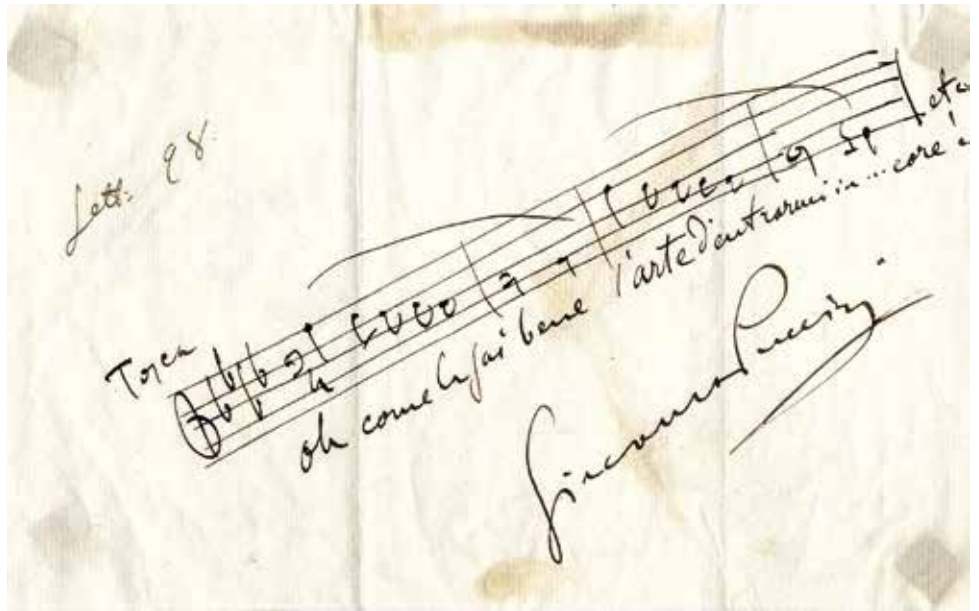 Sett: 98.
Tosca
oh come la sai bene l'arte d'entrarmi in... core
etc
Giacomo Puccini